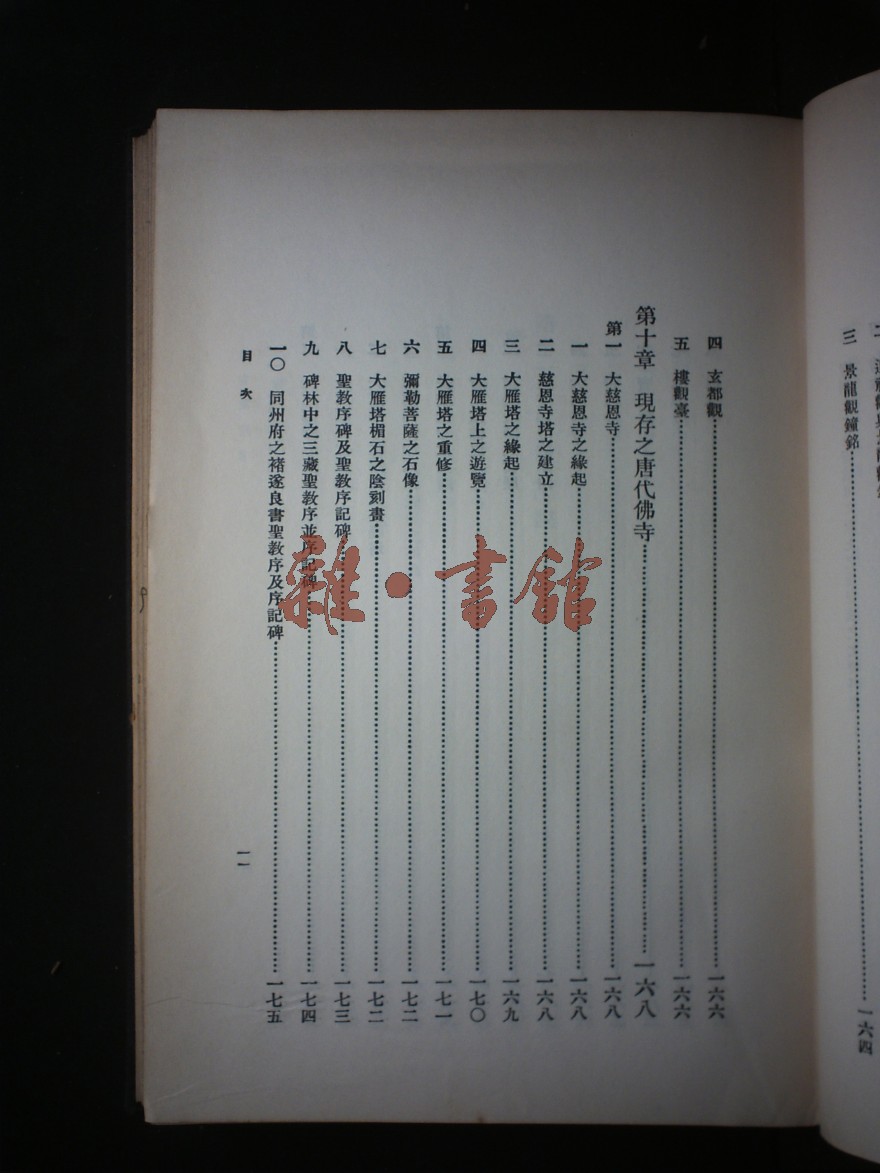 三 景龍觀鐘銘……一六四
四 玄都觀……一六六
五 樓觀臺……一六六
第十章 現存之唐代佛寺……一六八
第一 大慈恩寺……一六八
一 大慈恩寺之緣起……一六八
二 慈恩寺塔之建立……一六八
三 大雁塔之緣起……一六九
四 大雁塔上之遊覽……一七〇
五 大雁塔之重修……一七一
六 彌勒菩薩之石像……一七二
七 大雁塔楣石之陰刻畫……一七二
八 聖教序碑及聖教序記碑……一七三
九 碑林中之三藏聖教序並序記碑……一七四
一〇 同州府之褚遂良書聖教序及序記碑……一七五
目次
一一
雜·書館